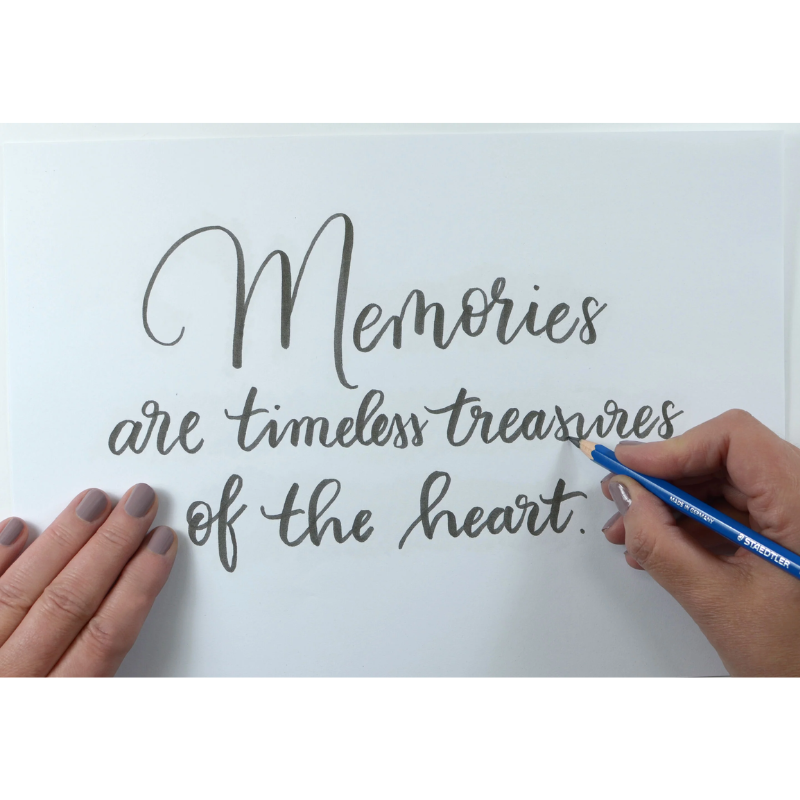 Memories
are timeless treasures
of the heart.
MADE IN GERMANY
STAEDTLER